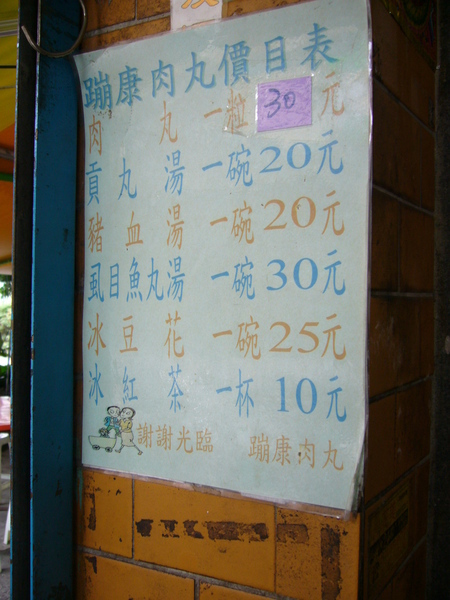 蹦康肉丸價目表
肉丸 一粒 30 元
貢丸湯 一碗 20元
豬血湯 一碗 20元
虱目魚丸湯 一碗 30元
冰豆花 一碗 25元
冰紅茶 一杯 10元
謝謝光臨 蹦康肉丸